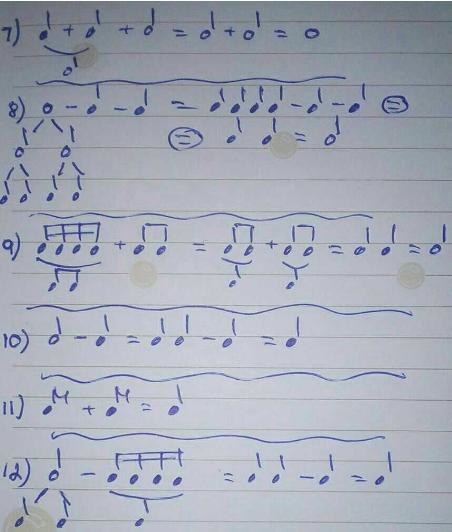 7) ♩ + ♩ + 𝅗𝅥 = 𝅗𝅥 + 𝅗𝅥 = 𝅝
𝅗𝅥
8) 𝅝 - ♩ - ♩ = ♩ ♩ ♩ ♩ - ♩ - ♩ ⊜
𝅗𝅥 𝅗𝅥 ⊜ ♩ ♩ = 𝅗𝅥
♩ ♩ ♩ ♩
9) ♬♬ + ♫ = ♫ + ♫ = ♩ ♩ = 𝅗𝅥
♫ ♩ ♩
10) 𝅗𝅥 - ♩ = ♩ ♩ - ♩ = ♩
11) ♪ + ♪ = ♩
12) 𝅗𝅥 - ♬♬ = ♩ ♩ - ♩ = ♩
♩ ♩ ♩